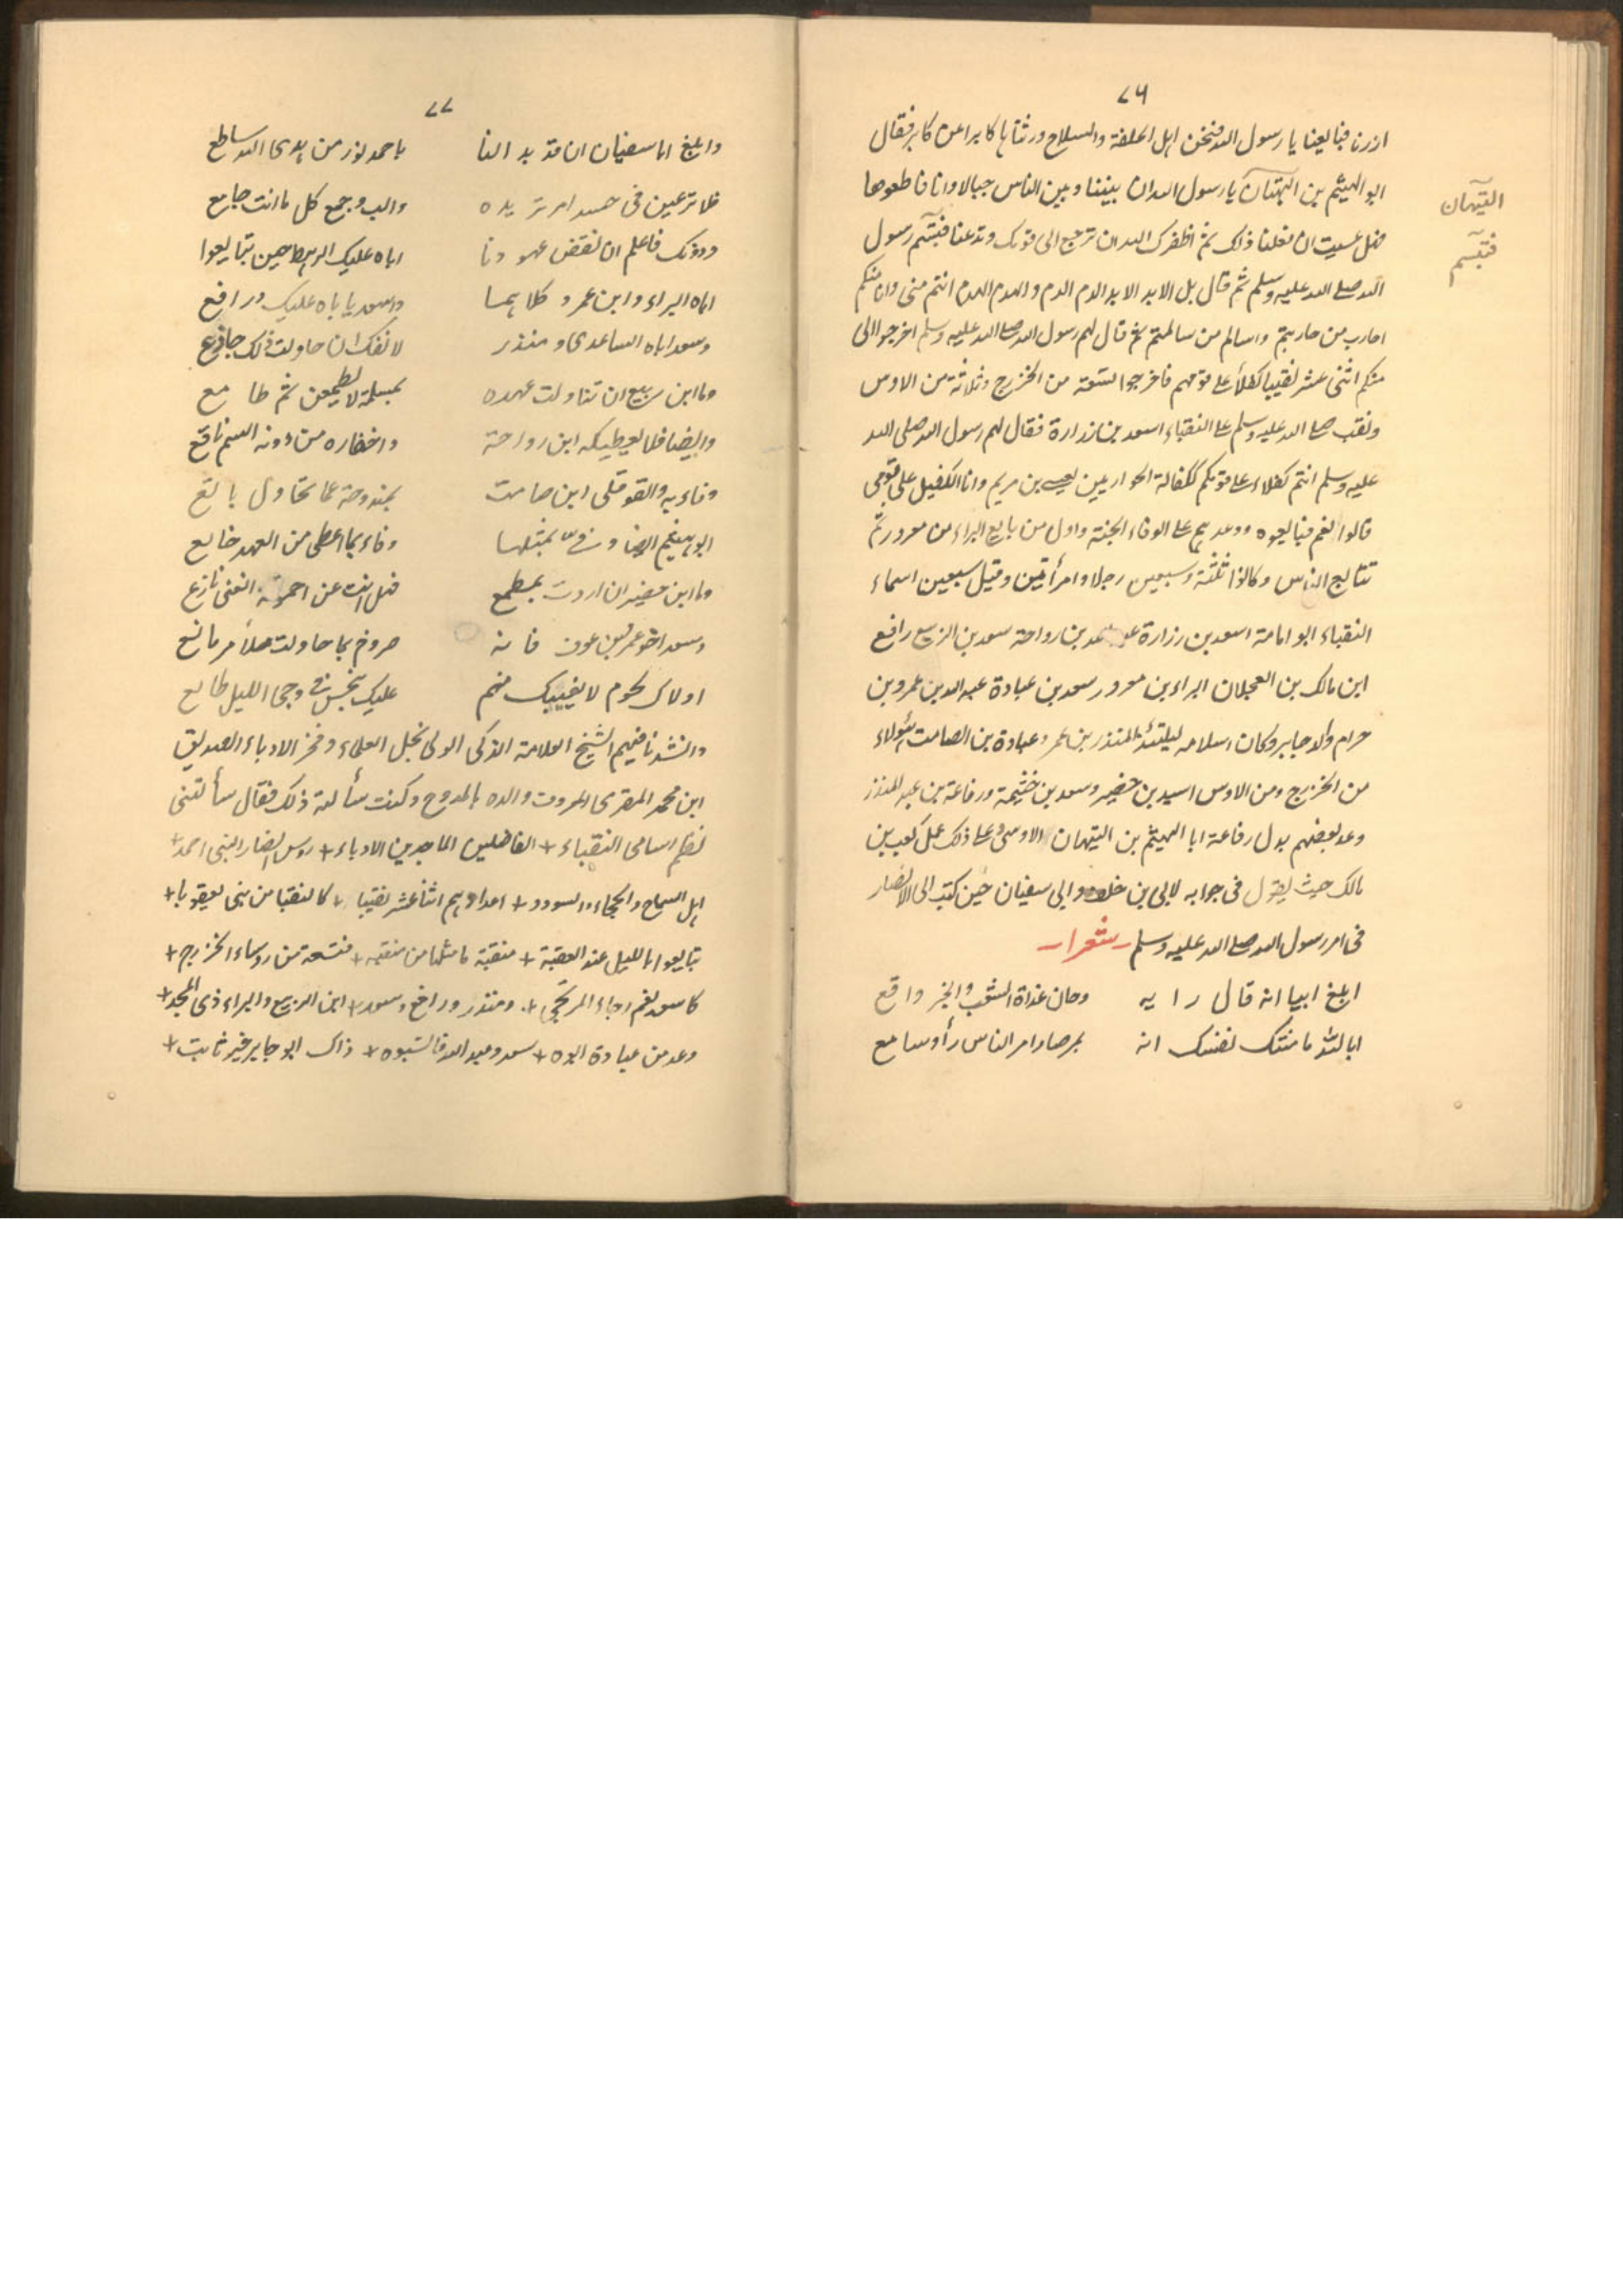 ٧٦
ازرنا فبايعنا يا رسول الله فنحن اهل الحلقة والسلاح ورثناها كابرا عن كابر فقال
ابو الهيثم بن التيهان يا رسول الله ان بيننا وبين الناس حبالا وانا قاطعوها
فهل عسيت ان فعلنا ذلك ثم اظفرك الله ان ترجع الى قومك وتدعنا فتبسم رسول
الله صلے الله عليه وسلم ثم قال بل الابد الابد الدم الدم والهدم الهدم انتم منى وانا منكم
احارب من حاربتم واسالم من سالمتم ثم قال لهم رسول الله صلے الله عليه وسلم اخرجوا الى
منكم اثنى عشر نقيبا كفلاء على قومهم فاخرجوا تسعة من الخزرج وثلاثة من الاوس
ونقب صلے الله عليه وسلم على النقباء اسعد بن زرارة فقال لهم رسول الله صلى الله
عليه وسلم انتم كفلاء على قومكم ككفالة الحواريين لعيسى بن مريم وانا الكفيل على قومى
قالوا نعم فبايعوه ووعدهم على الوفاء الجنة واول من بايع البراء بن معرور ثم
تتابع الناس وكانوا ثلثة وسبعين رجلا وامرأتين وقيل سبعين اسماء
النقباء ابو امامة اسعد بن زرارة بن رواحة سعد بن الربيع رافع
ابن مالك بن العجلان البراء بن معرور سعد بن عبادة عبد الله بن عمرو بن
حرام والد جابر وكان اسلامه ليلتئذ المنذر بن عمر وعبادة بن الصامت هؤلاء
من الخزرج ومن الاوس اسيد بن حضير وسعد بن خثيمة ورفاعة بن عبد المنذر
وعد بعضهم بدل رفاعة ابا الهيثم بن التيهان الاوسى وعلى ذلك عمل كعب بن
مالك حيث يقول فى جوابه لابى بن خلف وابى سفيان حين كتب الى الانصار
فى امر رسول الله صلے الله عليه وسلم شعرا
ابلغ ابيا انه قال رايه وحان غداة الشعب والخبر واقع
ابا لله ما منتك نفسك انه بمرصاد امر الناس رأ وسامع
التيهان
فتبسم
٧٧
وابلغ ابا سفيان ان قد بد النا باحمد نور من هدى الله ساطع
فلا ترعين فى حسد امر تريده والب وجمع كل ما انت جامع
ودونك فاعلم ان نقض عهودنا اباه عليك الرهط حين تبايعوا
اباه البراء وابن عمرو كلاهما واسعد ياباه عليك ورافع
وسعد اباه الساعدى ومنذر لانفك ان حاولت ذلك جادع
وما ابن ربيع ان تناولت عهده بمسلمة لا يطمعن ثم طامع
وايضا فلا يعطيكه ابن رواحة واخفاره من دونه السم ناقع
وفاء به والقوقلى ابن صامت بمندوحة عما تحاول يانع
ابو هيثم ايضا وفىّ بمثلها وفاء بما اعطى من العهد خانع
وما ابن حضير ان اردت بمطمع فهل انت عن احموقة الغى نازع
وسعد اخو عمر بن عوف فانه ضروح بما حاولت ملأمر مانع
اولاك نجوم لا يغيبك منهم عليك بنحس فى دجى الليل طالع
وانشدنا فيهم الشيخ العلامة الذكى الولى نجل العلماء وفخر الادباء الصديق
ابن محمد المقرى المعروف والده بالمدوح وكنت سألته ذلك فقال سألتنى
نظم اسامى النقباء + الفاضلين الماجدين الادباء + روس انصار النبى احمد +
اهل السماح والحجاء والسودد + اعدادهم اثنا عشر نقيبا + كالنقبا من بنى يعقوبا +
تبايعوا بالليل عند العقبة + منقبة ما مثلها من منقبه + فتسعة من روساء الخزرج +
كاسعد نعم رجاء المرتجى + ومنذر ورافع وسعد + ابن الربيع والبراء ذى المجد +
وعد من عبادة ابوه + سعد وعبد الله فالشبوه + ذاك ابو جابر خير ثابت +